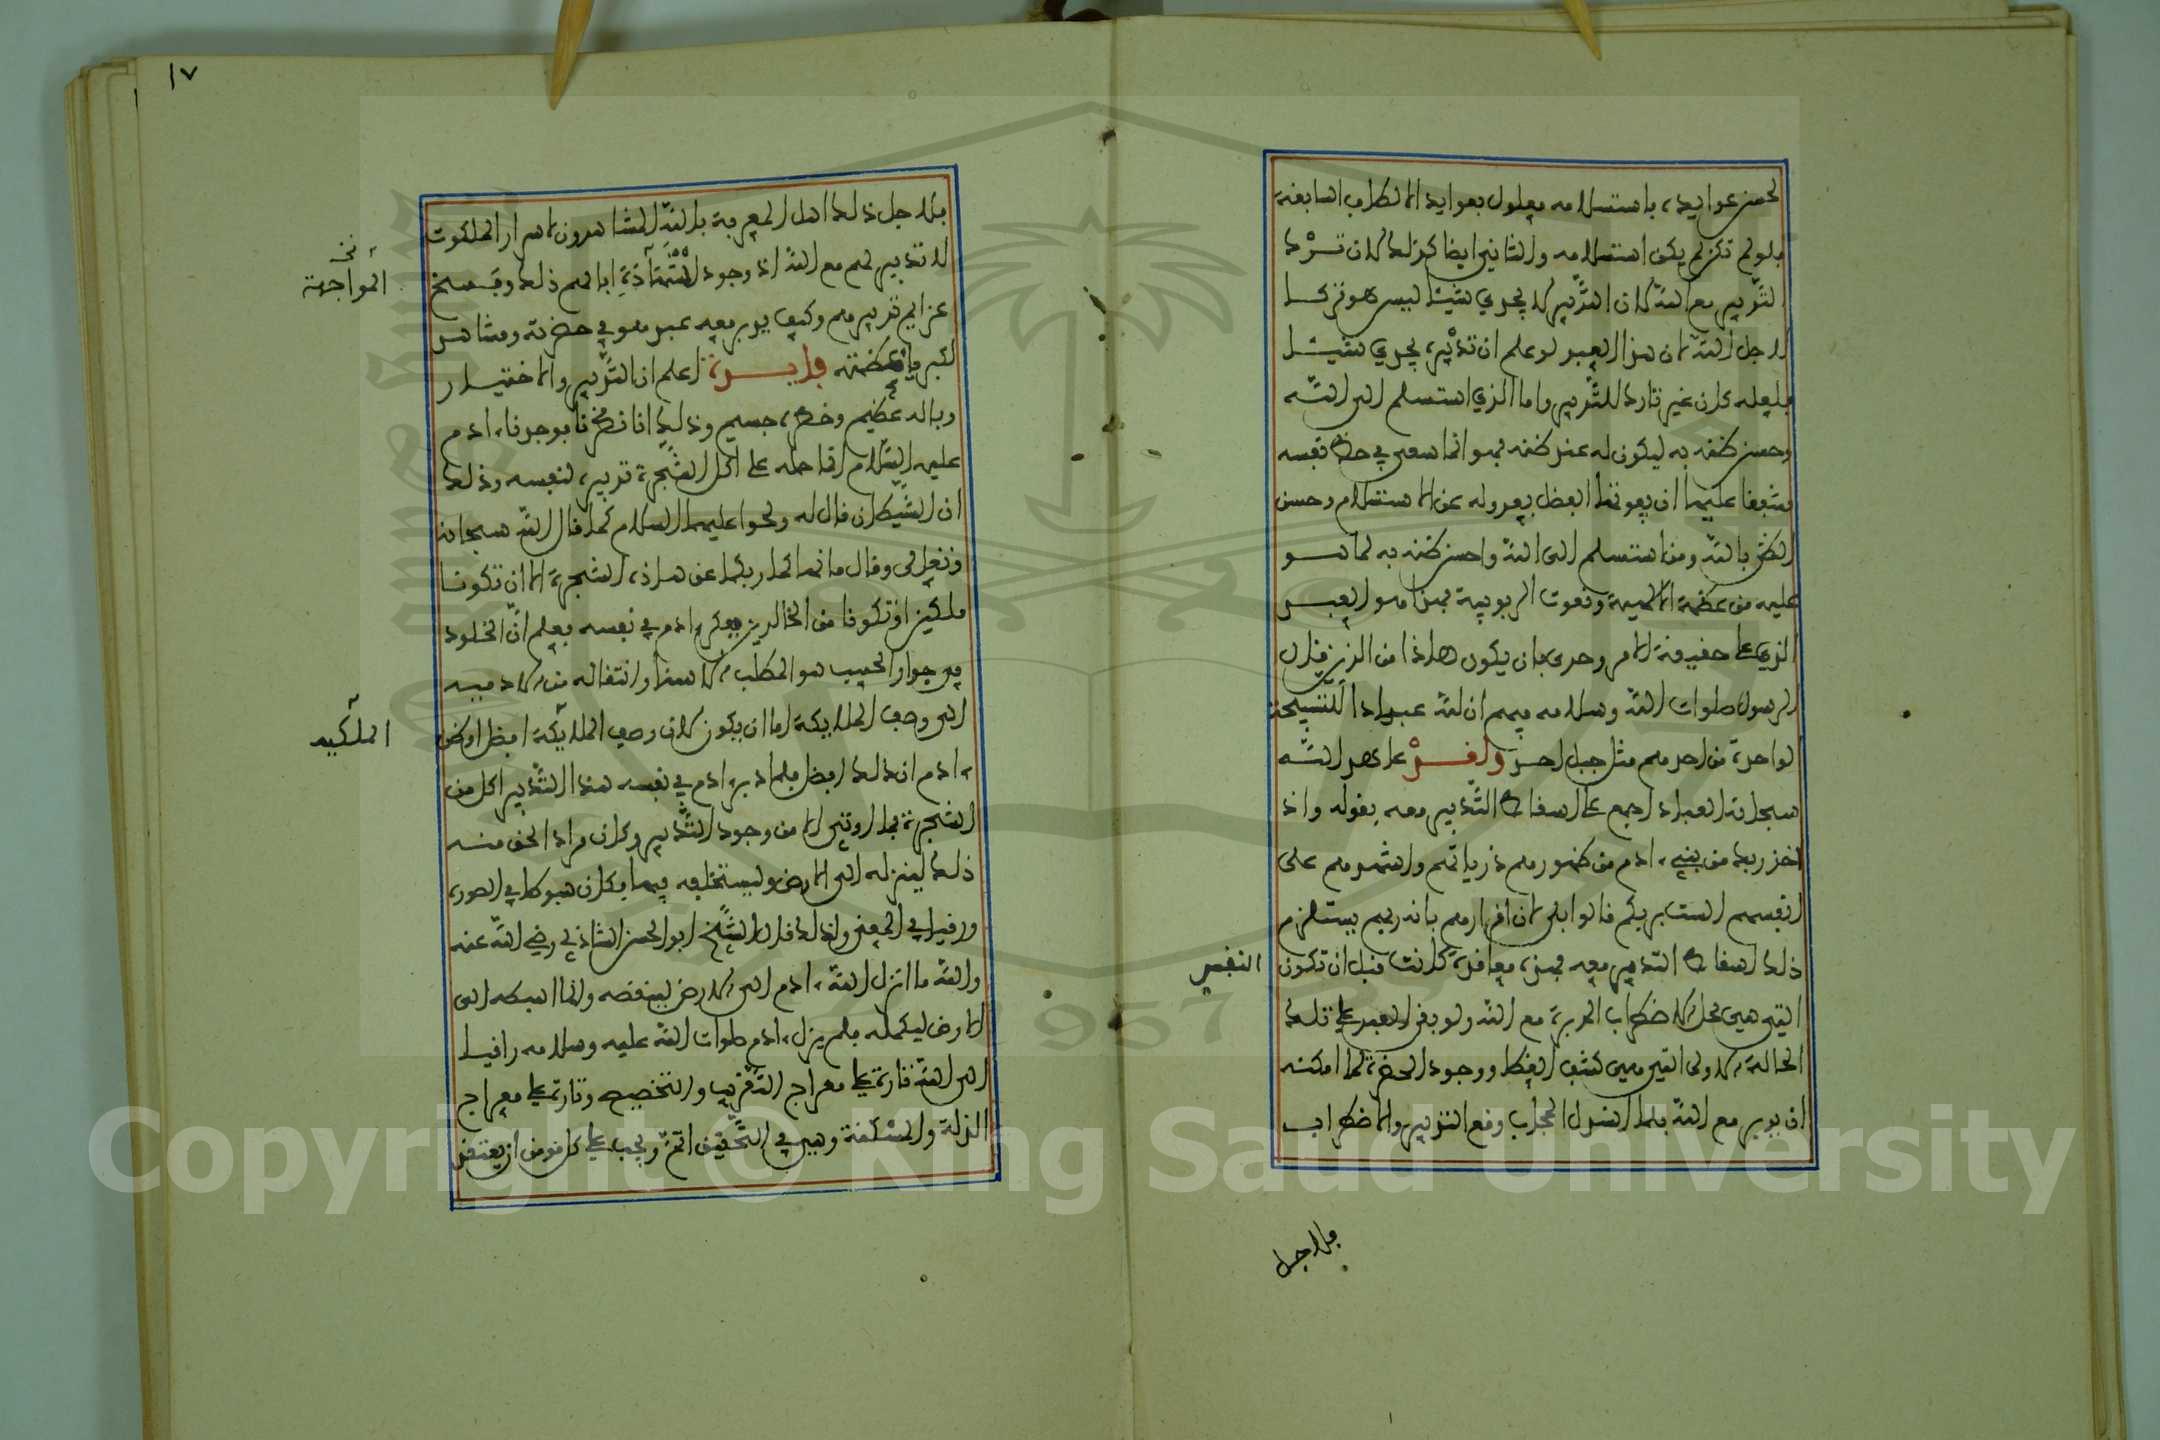 لحسن عوايده باستسلامه معلول بعوايد الالطاف السابغة
فلو لم تكن لم يكن استسلامه والثاني ايضا كذلك لان ترك
التدبير مع الله لان التدبير لا يجدي شيئا ليس هو تركا
لاجل الله لان هذا العبد لو علم ان تدبيره يجدي شيئا
فلعله كان غير تارك للتدبير واما الذي استسلم الى الله
وحسن ظنه به ليكون له عند ظنه فهو انما سعى في حظ نفسه
مشفقا عليها ان يفوتها الفضل بعدوله عن الاستسلام وحسن
الظن بالله ومن استسلم الى الله واحسن ظنه به لما هو
عليه من عظمة الالهية ونعوت الربوبية فهذا هو العبد
الذي على حقيقة الامر وحرى بان يكون هاذا من الذين قال
الرسول صلوات الله وسلامه فيهم ان لله عبادا التسبيحة
الواحدة من احدهم مثل جبل احد ولقد عاهد الله
سبحانه العباد اجمع على اسقاط التدبير معه بقوله واذ
اخذ ربك من بني ءادم من ظهورهم ذرياتهم واشهدهم على
انفسهم الست بربكم قالوا بلى لان اقرارهم بانه ربهم يستلزم
ذلك اسقاط التدبير معه فهذه معاقدة كانت قبل ان تكون
النفس
التي هي محل الاضطراب المدبرة مع الله ولو بقي العبد على تلك
الحالة الاولى التي هي كشف الغطا ووجود الحضرة لما امكنه
ان يدبر مع الله فلما اسدل الحجاب وقع التدبير والاضطراب
فلاجل
١٧
فلاجل ذلك اهل المعرفة بالله المشاهدون لاسرار الملكوت
لا تدبير لهم مع الله اذ وجود ابا لهم ذلك وفسخ
نخ
المواجهة
عزايم تدبيرهم وكيف يدبر معه عبد هو في حضرته ومشاهد
لكبرياء عظمته فايدة اعلم ان التدبير والاختيار
وباله عظيم وخطره جسيم وذلك انا نظرنا فوجدنا ءادم
عليه السلام انما حمله على اكل الشجرة تدبيره لنفسه وذلك
ان الشيطان قال له ولحوا عليهما السلام كما قال الله سبحانه
وتعالى وقال ما نهاكما ربكما عن هاذه الشجرة الا ان تكونا
ملكين او تكونا من الخالدين ففكر ءادم في نفسه فعلم ان الخلود
في جوار الحبيب هو المطلب الاسنا وانتقاله من الادمية
الى وصف الملايكة اما ان يكون لان وصف الملايكة افضل او ظن
الملكية
ءادم ان ذلك افضل فلما دبر ءادم في نفسه هذا التدبير اكل من
الشجرة فما اوتي الا من وجود التدبير وكان مراد الحق منه
ذلك لينزله الى الارض وليستخلفه فيها فكان هبوطا في الصورة
ورقيا في المعنى ولذلك قال الشيخ ابو الحسن الشاذلي رضي الله عنه
والله ما انزل الله ءادم الى الارض لينقصه وانما اهبطه الى
الارض ليكمله فلم يزل ءادم صلوات الله عليه وسلامه راقيا
الى الله تارة على معراج التقريب والتخصيص وتارة على معراج
الذلة والمسكنة وهي في التحقيق اتم ويجب على كل مومن ان يعتقد